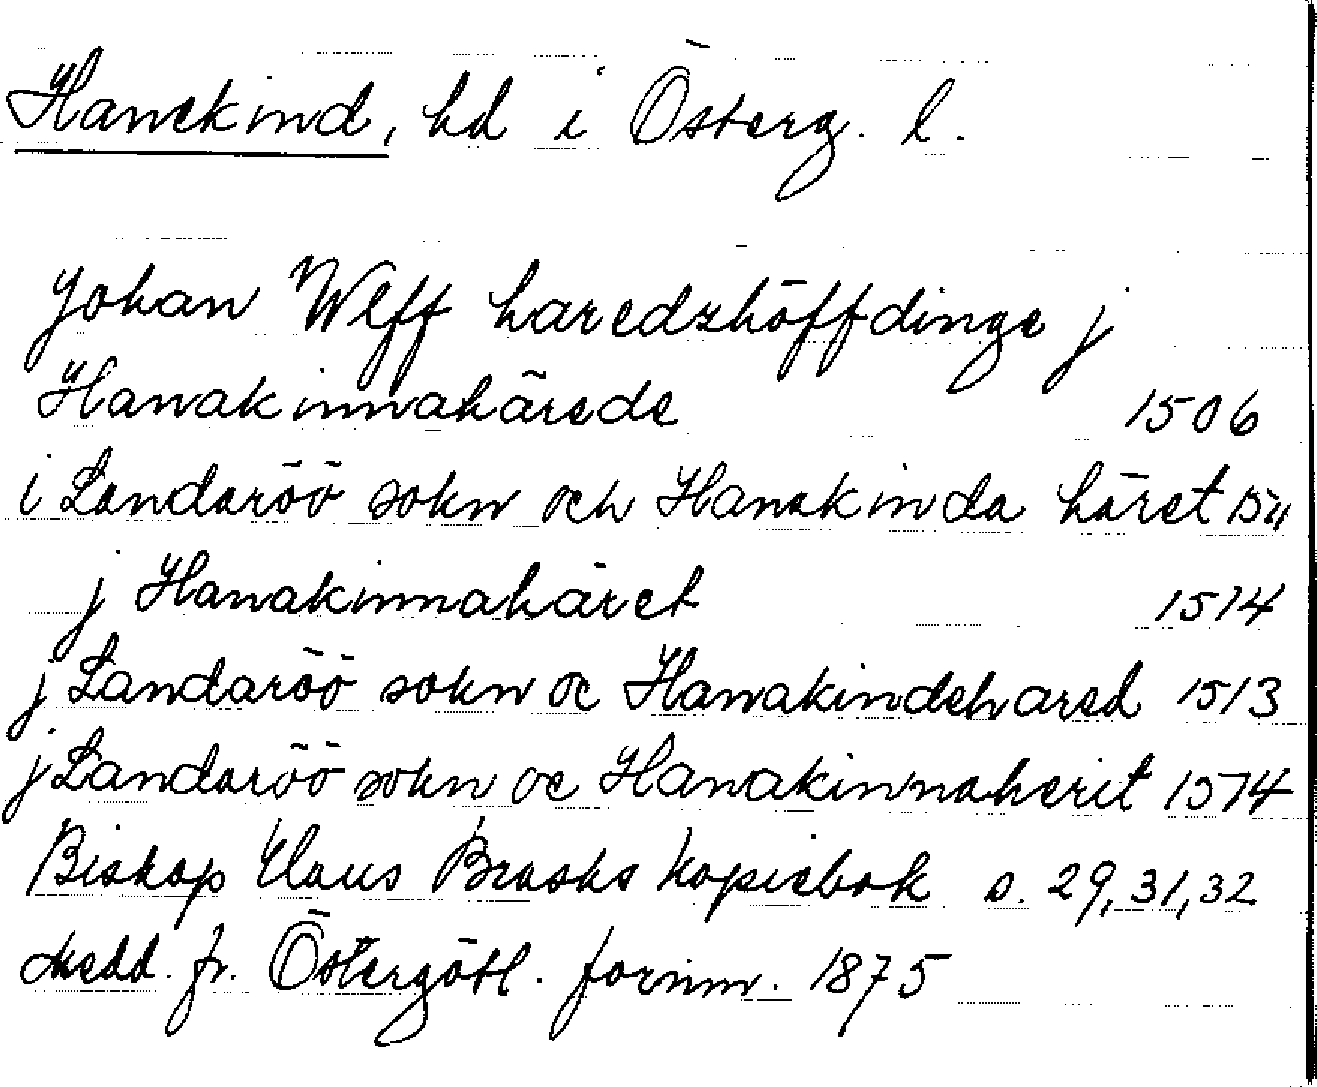 Hanekind, hd i Österg. l.
Johan Wlff haredzhöffdinge j
Hanakinnahärede 1506
i Landaröö sokn och Hanakinda häret 1511
j Hanakinnahäret 1514
j Landaröö sokn oc Hanakindehared 1513
j Landaröö sokn oc Hanakinnaherit 1514
Biskop Claus Brasks kopiebok s. 29, 31, 32
Medd. fr. Östergötl. fornm. 1875